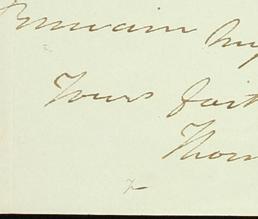 remain my
Yours fait
Thom